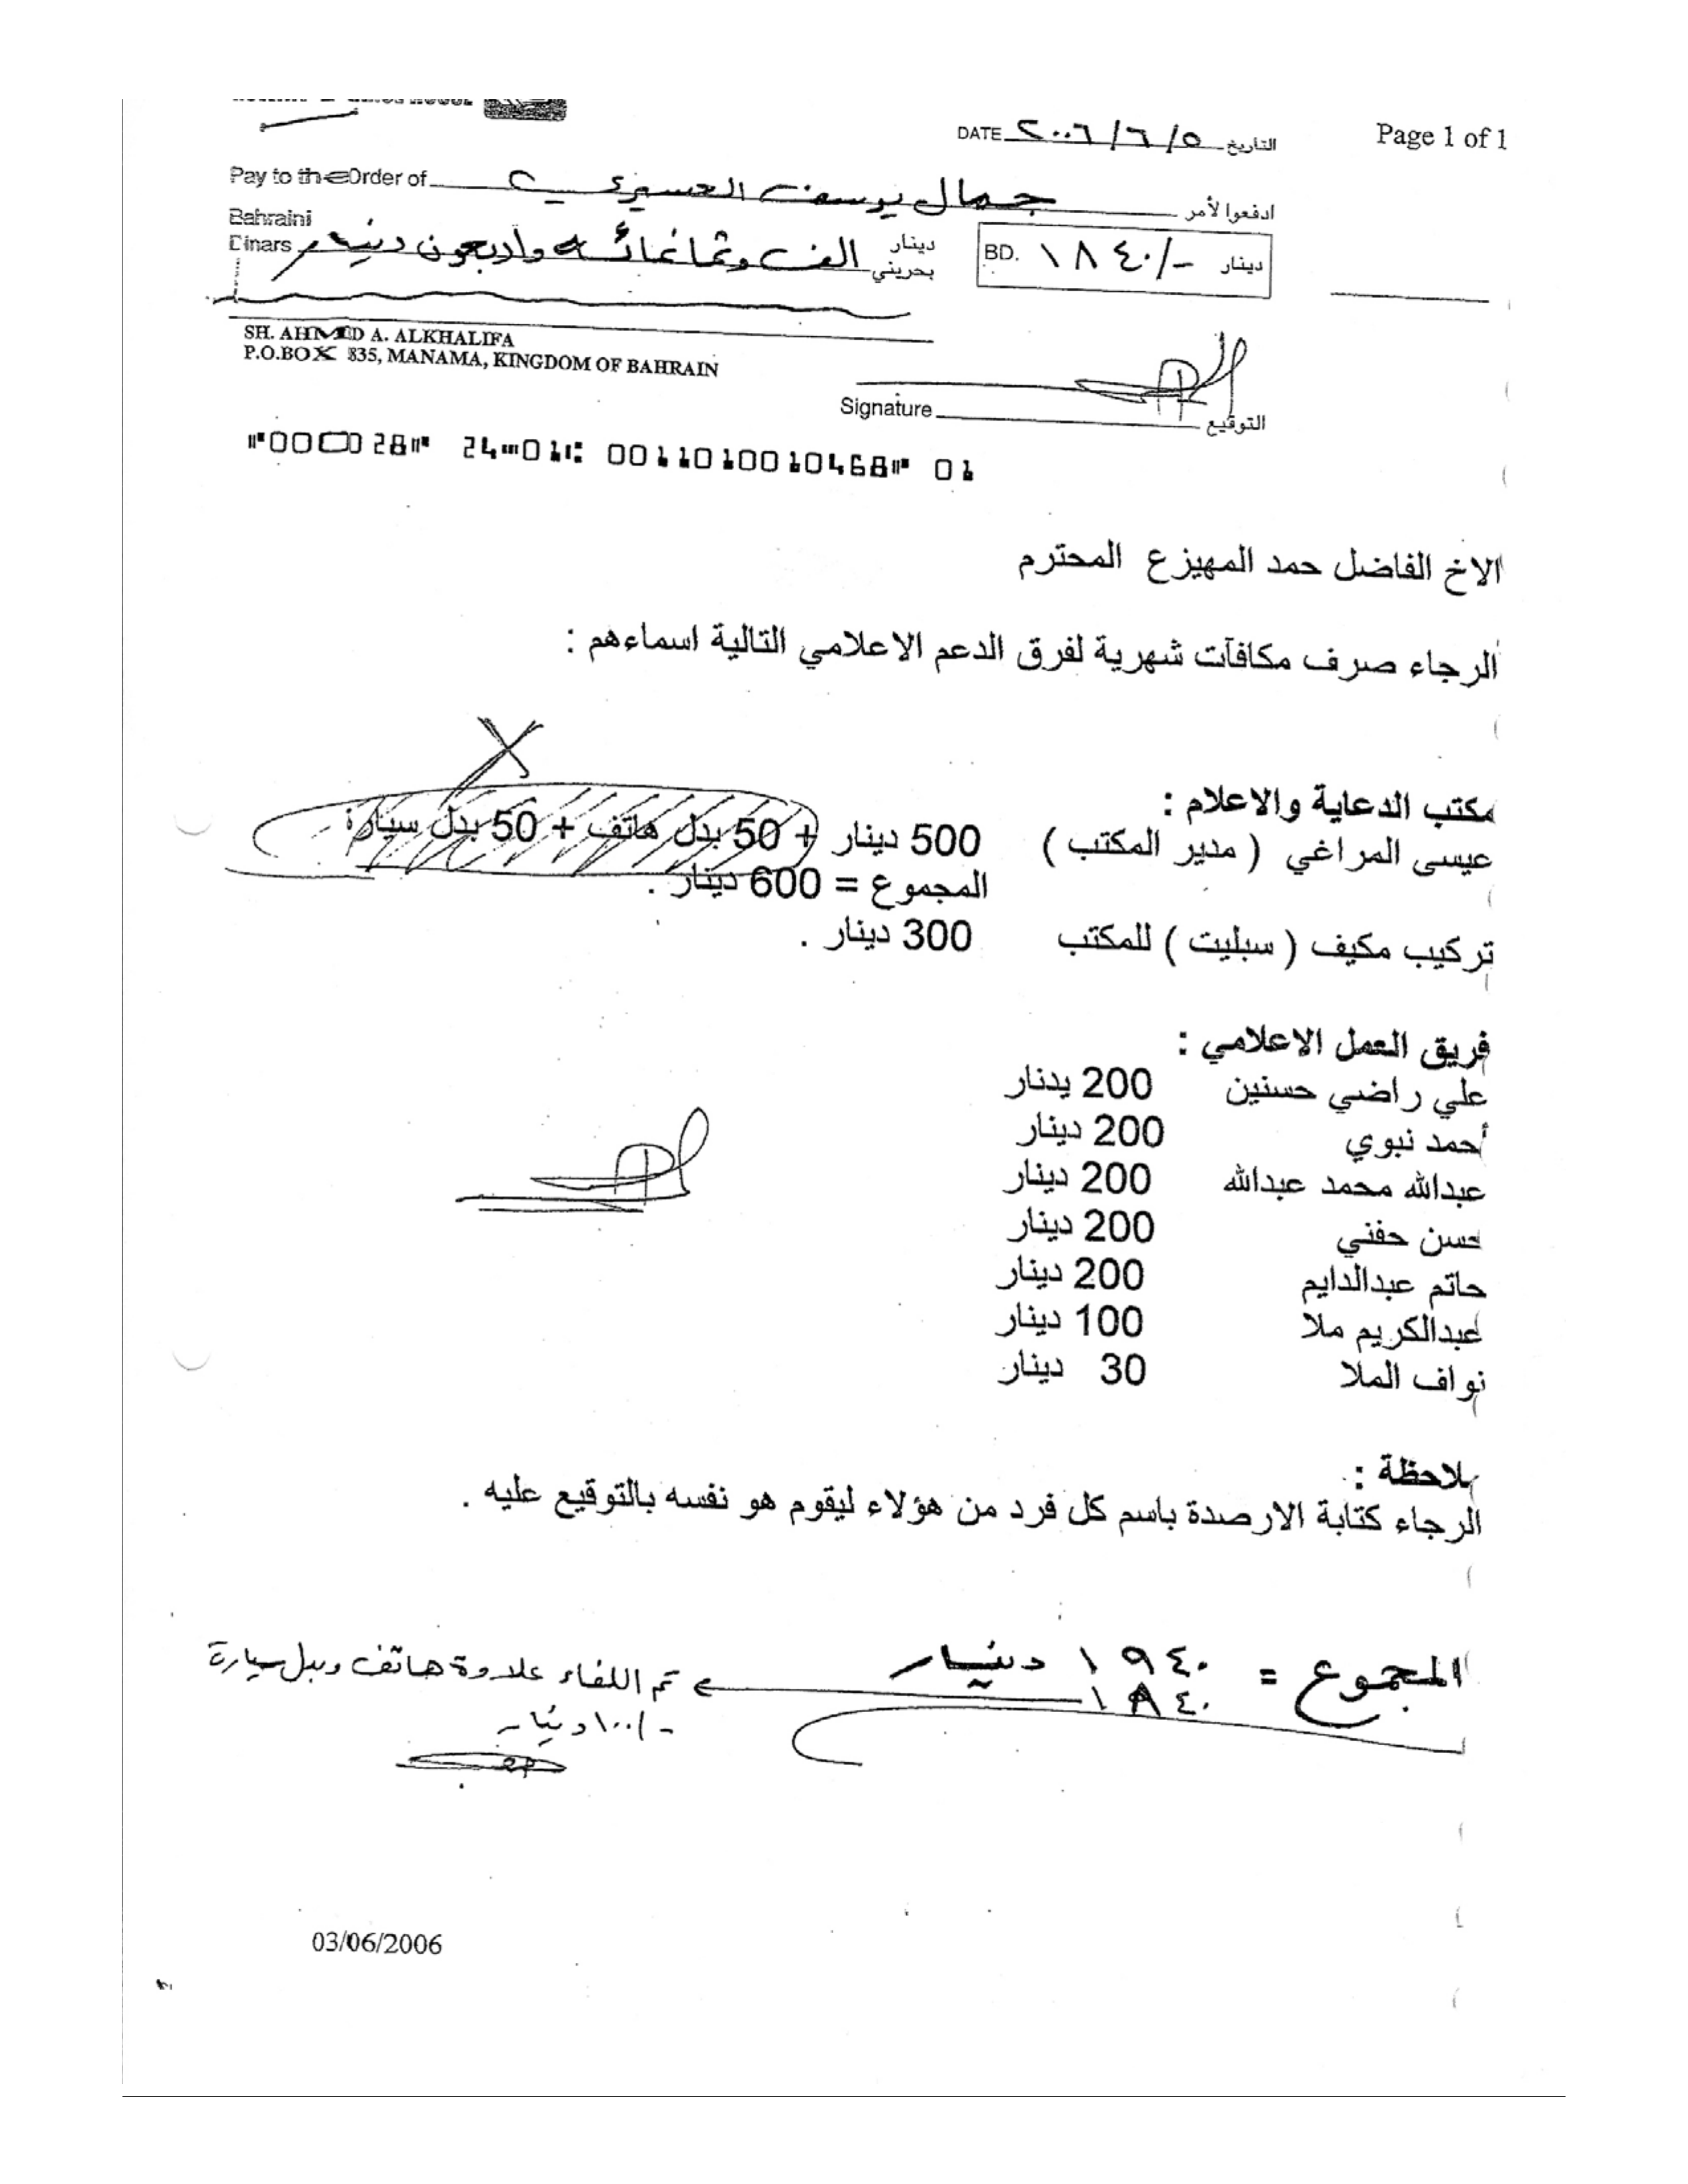 Page 1 of 1
DATE ٢٠٠٦/٦/٥ التاريخ
Pay to the Order of جمال يوسف العسيري ادفعوا لأمر
Bahraini Dinars الف وثمانمائه واربعون دينار دينار بحريني
BD. ١٨٤٠/- دينار
SH. AHMED A. ALKHALIFA
P.O.BOX 835, MANAMA, KINGDOM OF BAHRAIN
Signature التوقيع
⑈000028⑈ 24⑉01⑆ 0011010010468⑈ 01
الاخ الفاضل حمد المهيزع المحترم
الرجاء صرف مكافآت شهرية لفرق الدعم الاعلامي التالية اسماءهم :
مكتب الدعاية والاعلام :
عيسى المراغي ( مدير المكتب ) 500 دينار + 50 بدل هاتف + 50 بدل سيارة
المجموع = 600 دينار .
تركيب مكيف ( سبليت ) للمكتب 300 دينار .
فريق العمل الاعلامي :
علي راضي حسنين 200 يدنار
أحمد نبوي 200 دينار
عبدالله محمد عبدالله 200 دينار
حسن حفني 200 دينار
حاتم عبدالدايم 200 دينار
عبدالكريم ملا 100 دينار
نواف الملا 30 دينار
ملاحظة :
الرجاء كتابة الارصدة باسم كل فرد من هؤلاء ليقوم هو نفسه بالتوقيع عليه .
المجموع = ١٩٤٠ دينار
١٨٤٠ تم اللغاء علاوة هاتف وبدل سيارة
-/١٠٠ دينار
03/06/2006